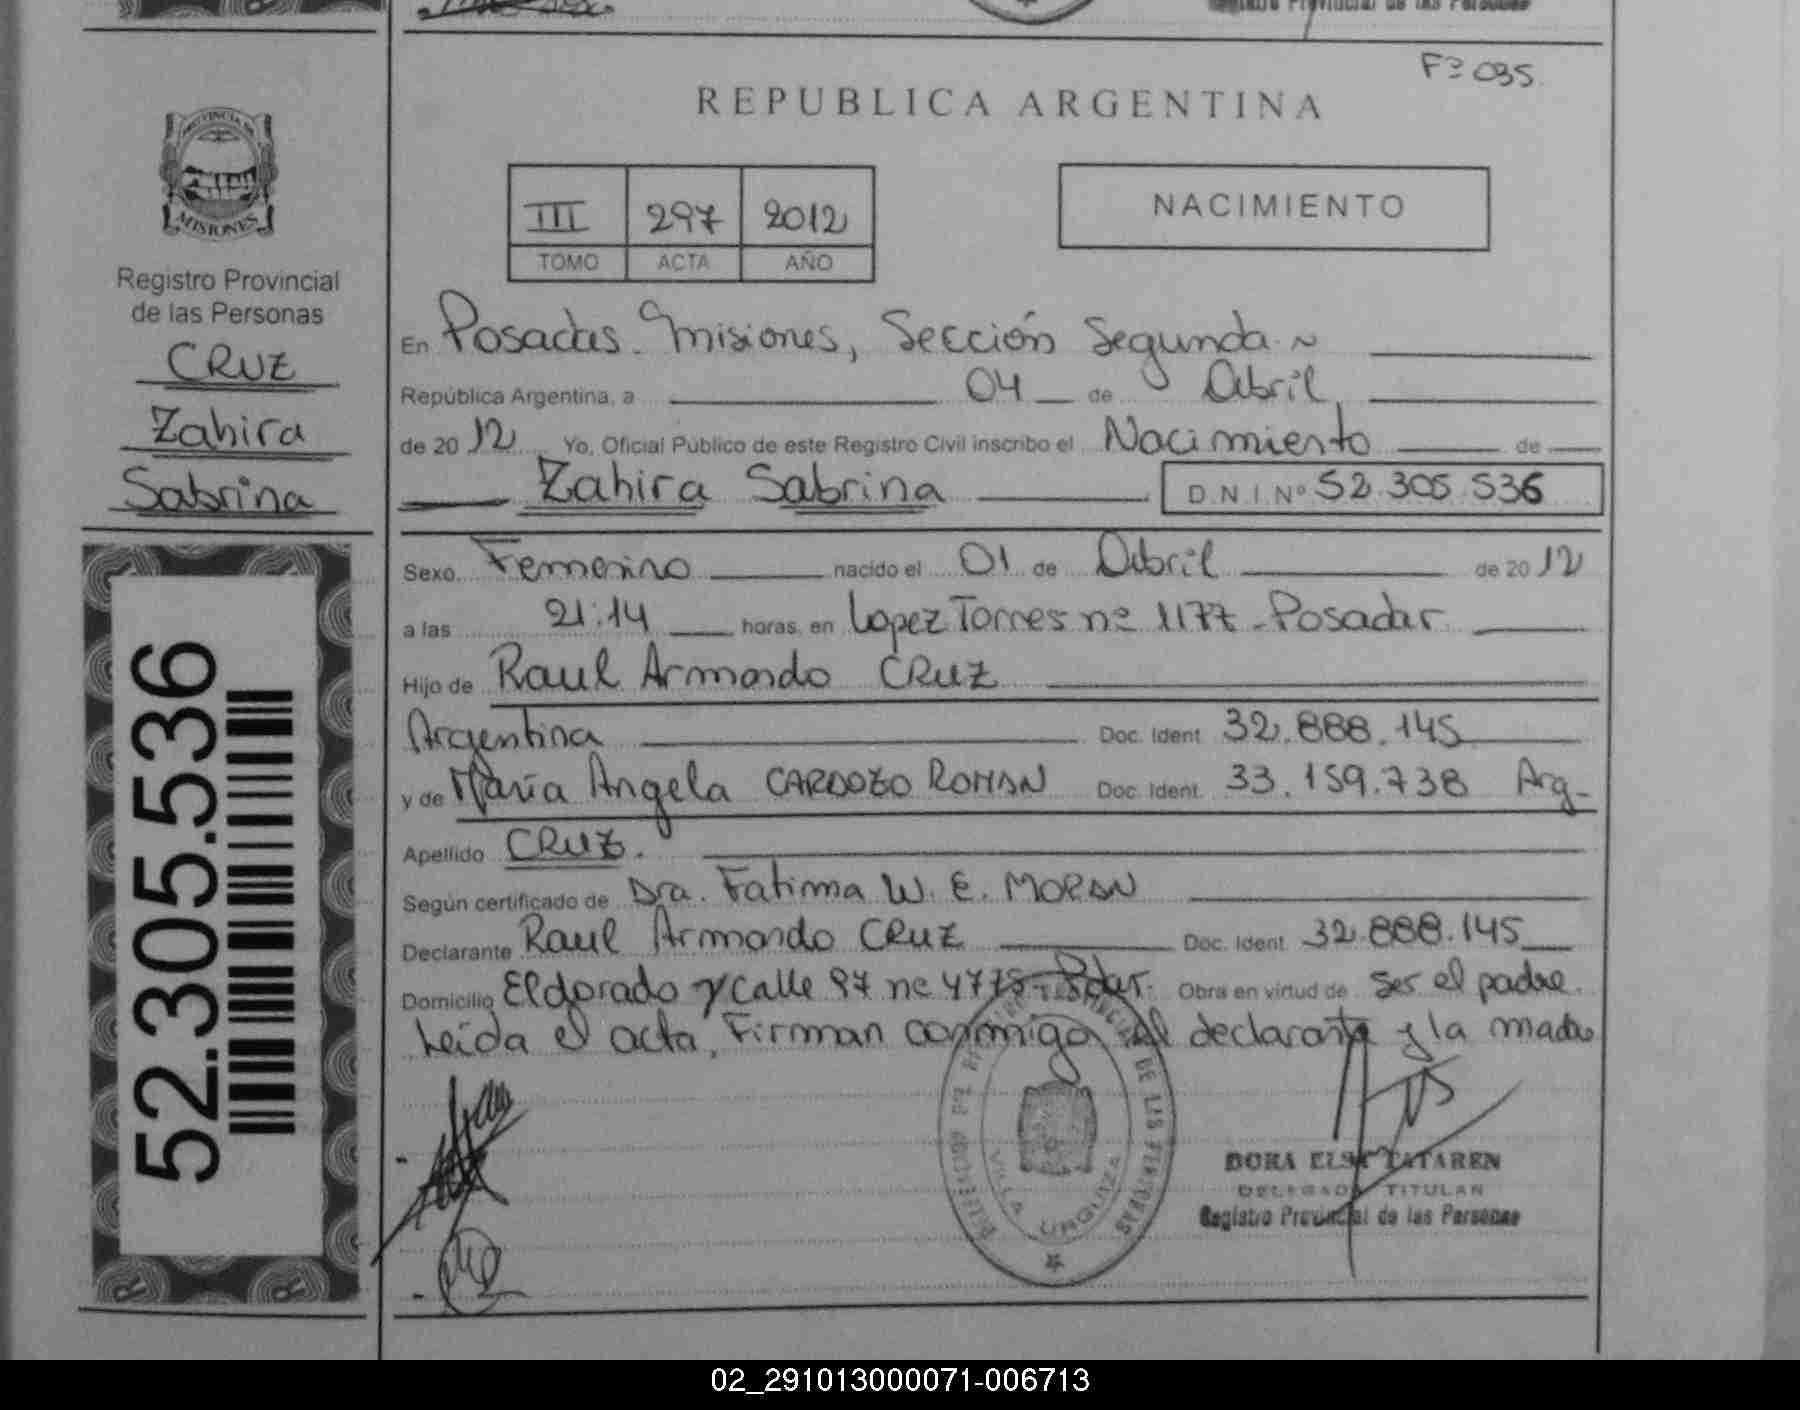 Registro Provincial de las Personas
Fº 035
REPUBLICA ARGENTINA
PROVINCIA DE
MISIONES
III 297 2012
TOMO ACTA AÑO
NACIMIENTO
Registro Provincial
de las Personas
CRUZ
Zahira
Sabrina
52.305.536
En Posadas. Misiones, Sección Segunda.
República Argentina, a 04 de Abril
de 2012 Yo, Oficial Público de este Registro Civil inscribo el Nacimiento de
Zahira Sabrina D.N.I. Nº 52.305.536
Sexo Femenino nacido el 01 de Abril de 2012
a las 21:14 horas, en Lopez Torres nº 1177 - Posadas
Hijo de Raul Armando CRUZ
Argentina Doc. Ident. 32.888.145
y de María Angela CARDOZO ROMAN Doc. Ident. 33.159.738 Arg-
Apellido CRUZ.
Según certificado de Dra. Fatima W. E. MORAN
Declarante Raul Armando CRUZ Doc. Ident. 32.888.145
Domicilio Eldorado y calle 97 nº 4775 - Pdas. Obra en virtud de ser el padre.
Leída el acta, Firman conmigo el declarante y la madre
DE LAS PERSONAS
VILLA URQUIZA
DORA ELSA TATAREN
DELEGADA TITULAR
Registro Provincial de las Personas
02_291013000071-006713